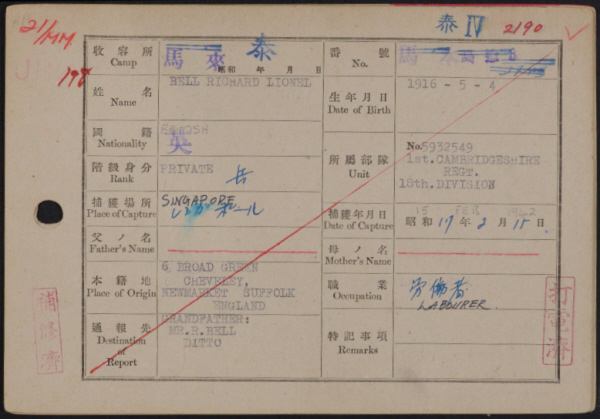 21/MM
泰 IV 2190
收容所
Camp
馬來 泰
昭和 年 月 日
番號
No.
姓名
Name
BELL RICHARD LIONEL
生年月日
Date of Birth
1916 - 5 - 4
國籍
Nationality
英
階級身分
Rank
PRIVATE
兵
所屬部隊
Unit
No.5932549
1st. CAMBRIDGESHIRE
REGT.
18th. DIVISION
捕獲場所
Place of Capture
SINGAPORE
捕獲年月日
Date of Capture
15 FEB 1942
昭和 17 年 2 月 15 日
父ノ名
Father's Name
母ノ名
Mother's Name
本籍地
Place of Origin
6, BROAD GREEN
CHEVELEY,
NEWMARKET SUFFOLK
ENGLAND
職業
Occupation
労働者
LABOURER.
通報先
Destination
of
Report
GRANDFATHER:
MR.R.BELL
DITTO
特記事項
Remarks